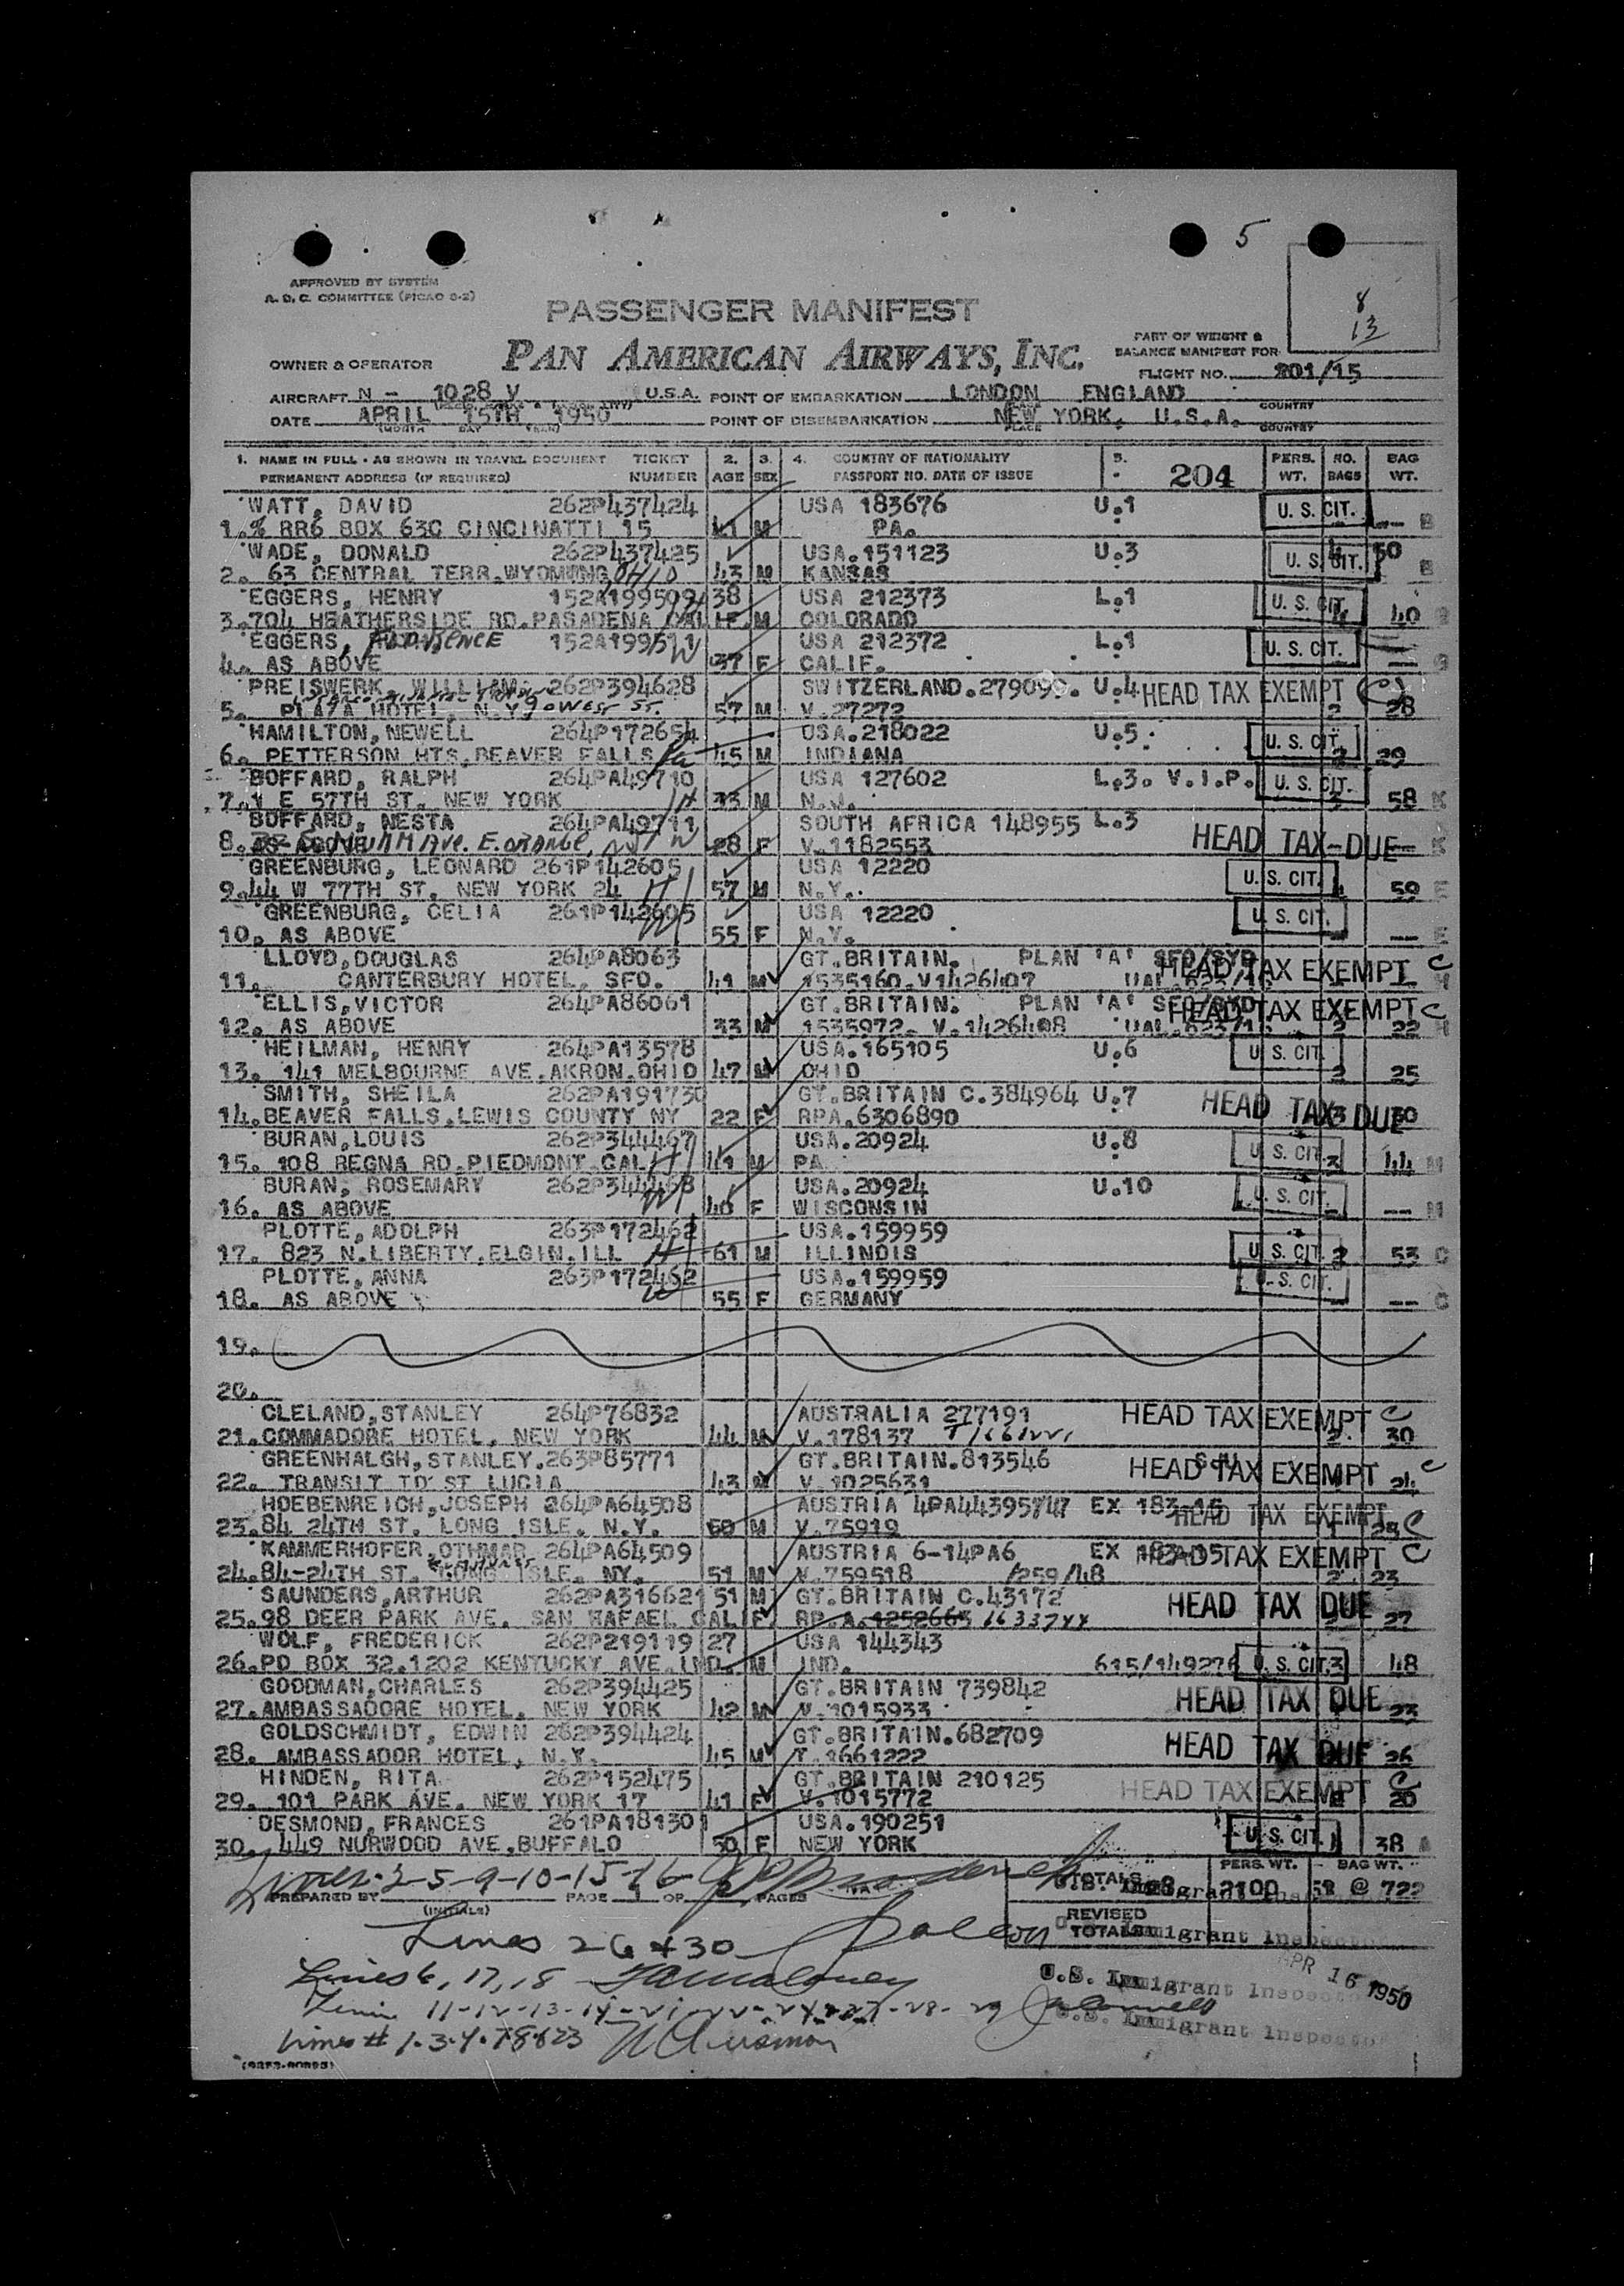 5
APPROVED BY SYSTEM
A. O. C. COMMITTEE (PICAO 8-2)
8
13
PASSENGER MANIFEST
PART OF WEIGHT &
OWNER & OPERATOR PAN AMERICAN AIRWAYS, INC. BALANCE MANIFEST FOR
FLIGHT NO. 201/15
AIRCRAFT N - 1028 V U.S.A. POINT OF EMBARKATION LONDON ENGLAND COUNTRY
DATE APRIL 15TH 1950 POINT OF DISEMBARKATION NEW YORK, U.S.A.
(MONTH DAY YEAR) PLACE COUNTRY
1. NAME IN FULL - AS SHOWN IN TRAVEL DOCUMENT TICKET 2. 3. 4. COUNTRY OF NATIONALITY 5. 204 PERS. NO. BAG
PERMANENT ADDRESS (IF REQUIRED) NUMBER AGE SEX PASSPORT NO. DATE OF ISSUE WT. BAGS WT.
WATT, DAVID 262P437424 USA 183676 U.1 U. S. CIT.
1.% RR6 BOX 63C CINCINATTI 15 41 M PA. -- B
WADE, DONALD 262P437425 USA.151123 U.3 U. S. CIT. 4 50
2. 63 CENTRAL TERR.WYOMING,OHIO 43 M KANSAS B
EGGERS, HENRY 152A199509 38 USA 212373 L.1 U. S. CIT.
3.704 HEATHERSIDE RD.PASADENA CAL M COLORADO 4 40 G
EGGERS, 152A199511 USA 212372 L.1 U. S. CIT.
4. AS ABOVE 37 F CALIF. -- G
PREISWERK, WILLIAM 262P394628 SWITZERLAND.279099. U.4 HEAD TAX EXEMPT
5. PLAZA HOTEL, N.Y. 57 M V.27272 2 28
HAMILTON,NEWELL 264P172654 USA.218022 U.5 U. S. CIT.
6. PETTERSON HTS.BEAVER FALLS Pa 45 M INDIANA 2 29
BOFFARD, RALPH 264PA49710 USA 127602 L.3. V.I.P. U. S. CIT.
7.1 E 57TH ST. NEW YORK H 33 M N.J. 3 58 K
BOFFARD, NESTA 264PA49711 SOUTH AFRICA 148955 L.3 HEAD TAX DUE
8. AS ABOVE Ave. E. ORANGE, NJ W 28 F V.1182553 -- K
GREENBURG, LEONARD 261P142605 USA 12220 U. S. CIT.
9.44 W 77TH ST. NEW YORK 24 H 57 M N.Y. 4 59 E
GREENBURG, CELIA 261P142605 USA 12220 U. S. CIT.
10. AS ABOVE W 55 F N.Y. -- E
LLOYD,DOUGLAS 264PA8063 GT.BRITAIN. PLAN 'A' SFO/SYD HEAD TAX EXEMPT C
11. CANTERBURY HOTEL, SFO. 41 M 1535160.V1426407 H
ELLIS,VICTOR 264PA86061 GT.BRITAIN. PLAN 'A' SFO/SYD HEAD TAX EXEMPT C
12. AS ABOVE 33 M 1535972. V.1426408 2 22 H
HEILMAN, HENRY 264PA13578 USA.165105 U.6 U. S. CIT.
13. 141 MELBOURNE AVE.AKRON.OHIO 47 M OHIO 2 25
SMITH, SHEILA 262PA191730 GT.BRITAIN C.384964 U.7 HEAD TAX DUE
14.BEAVER FALLS.LEWIS COUNTY NY 22 F RPA.6306890 3 30
BURAN,LOUIS 262P344467 USA.20924 U.8 U. S. CIT.
15. 108 REGNA RD.PIEDMONT.CAL H 41 M PA 3 44 M
BURAN, ROSEMARY 262P344468 USA.20924 U.10 U. S. CIT.
16. AS ABOVE W 40 F WISCONSIN -- M
PLOTTE,ADOLPH 263P172462 USA.159959
17. 823 N.LIBERTY.ELGIN.ILL H 61 M ILLINOIS U. S. CIT. 2 53 C
PLOTTE,ANNA 263P172462 USA.159959 U. S. CIT.
18. AS ABOVE W 55 F GERMANY -- C
19.
20.
CLELAND,STANLEY 264P76832 AUSTRALIA 277191 HEAD TAX EXEMPT C
21.COMMADORE HOTEL, NEW YORK 44 M V.178137 2 30
GREENHALGH,STANLEY.263P85771 GT.BRITAIN.813546 HEAD TAX EXEMPT C
22. TRANSIT TO ST LUCIA 43 M V.1025631 24
HOEBENREICH,JOSEPH 264PA64508 AUSTRIA 4PA44395747 EX 183-15 HEAD TAX EXEMPT C
23.84 24TH ST. LONG ISLE. N.Y. 50 M V.75919 1 25
KAMMERHOFER,OTHMAR 264PA64509 AUSTRIA 6-14PA6 EX 183-15 HEAD TAX EXEMPT C
24.84-24TH ST. LONG ISLE. NY. 51 M V.759518 /259/48 2 23
SAUNDERS,ARTHUR 262PA316621 51 M GT.BRITAIN C.43172 HEAD TAX DUE
25.98 DEER PARK AVE. SAN RAFAEL CALIF RP.A.1252663 27
WOLF, FREDERICK 262P219119 27 USA 144343
26.PO BOX 32.1202 KENTUCKY AVE.IND. M IND. 615/149276 U. S. CIT. 3 48
GOODMAN,CHARLES 262P394425 GT.BRITAIN 739842 HEAD TAX DUE
27.AMBASSADORE HOTEL, NEW YORK 42 M V.1015933 23
GOLDSCHMIDT, EDWIN 262P394424 GT.BRITAIN.682709 HEAD TAX DUE
28. AMBASSADOR HOTEL, N.Y. 45 M T.1661222 26
HINDEN, RITA 262P152475 GT.BRITAIN 210125 HEAD TAX EXEMPT C
29. 101 PARK AVE. NEW YORK 17 41 F V.1015772 20
DESMOND, FRANCES 261PA18130 USA.190251 U. S. CIT.
30. 449 NURWOOD AVE.BUFFALO 50 F NEW YORK 1 38 A
Lines 2-5-9-10-15-16 TOTALS 28 PERS. WT. 2100 BAG WT. 722
PREPARED BY (INITIALS) PAGE 1 OF PAGES
REVISED TOTALS U.S. Immigrant Inspector
Lines 26 & 30
APR 16 1950
Lines 6, 17, 18
U.S. Immigrant Inspector
U.S. Immigrant Inspector